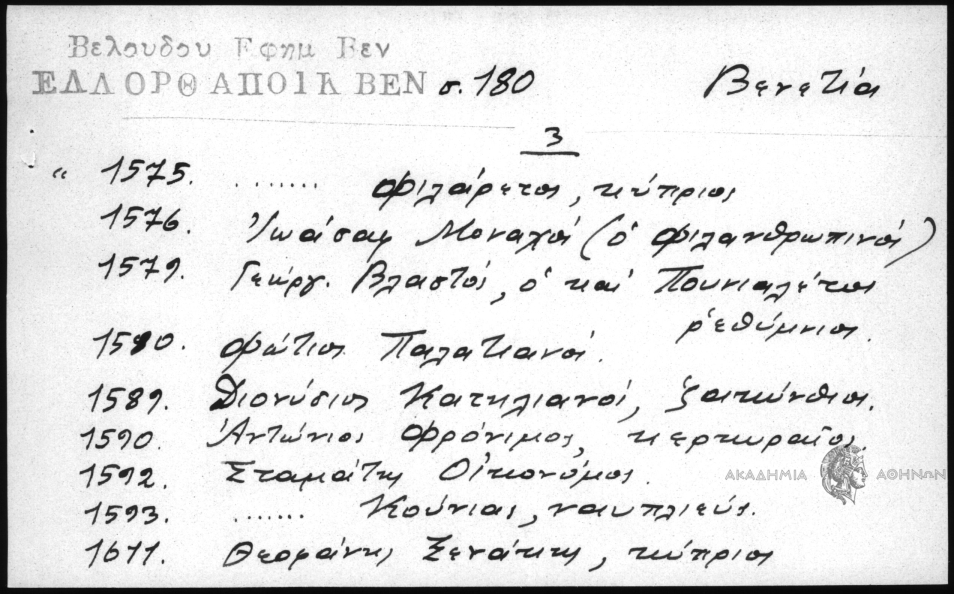 Βελουδου Εφημ Βεν
ΕΛΛΟΡΘ ΑΠΟΙΚ ΒΕΝ σ. 180 Βενετία
3
" 1575. ....... Φιλάρετος, κύπριος
1576. Ἰωάσαφ Μοναχός (ὁ Φιλανθρωπινός)
1579. Γεώργ. Βλαστός, ὁ καί Πουνιαλέτος
ῥεθύμνιος.
1580. Φώτιος Παλατιανός.
1589. Διονύσιος Κατηλιανός, ζακύνθιος.
1590. Ἀντώνιος Φρόνιμος, κερκυραῖος
1592. Σταμάτης Οἰκονόμος.
1593. ....... Κούνιας, ναυπλιεύς.
1611. Θεοφάνης Ξενάκης, κύπριος
ΑΚΑΔΗΜΙΑ ΑΘΗΝΩΝ